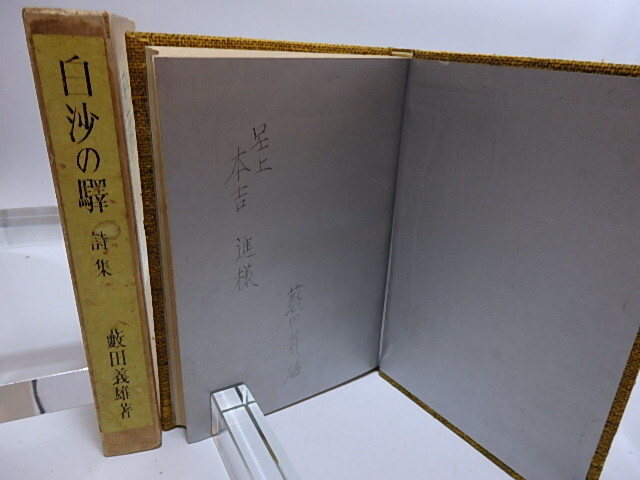 白沙の驛 詩集 藪田義雄著
呈上
本吉 進様
藪田義雄